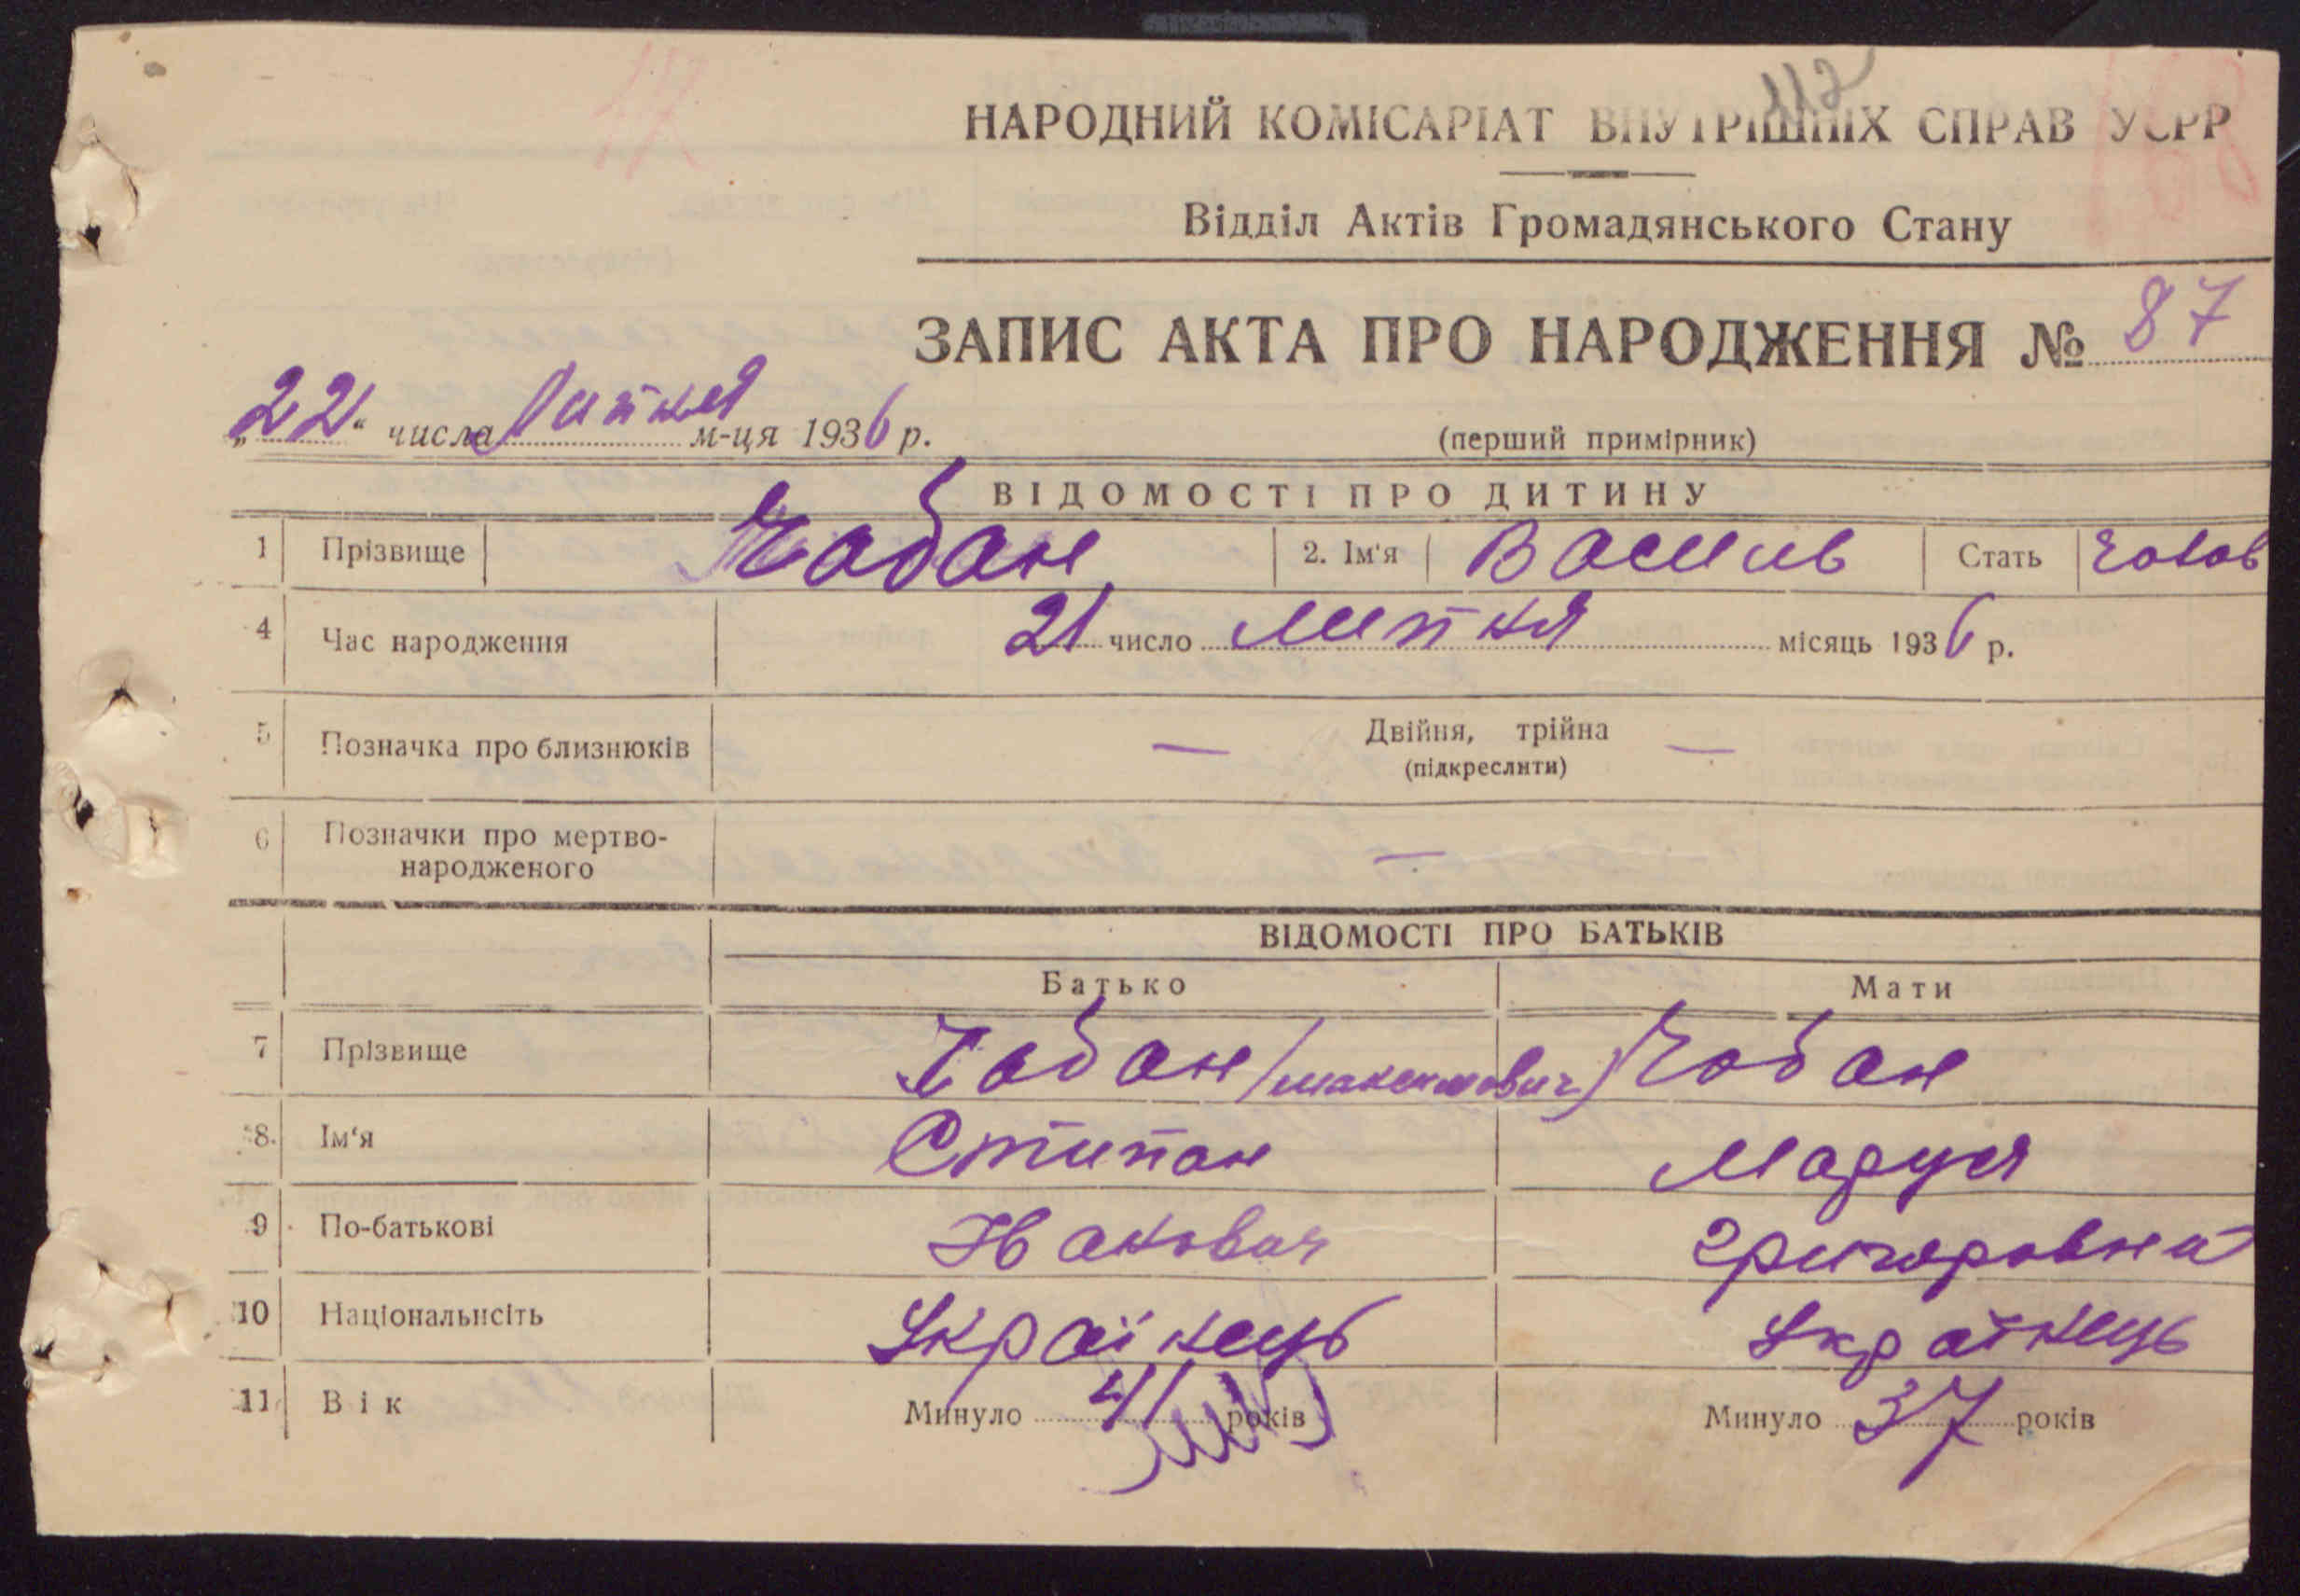 112
НАРОДНИЙ КОМІСАРІАТ ВНУТРІШНІХ СПРАВ УСРР
Відділ Актів Громадянського Стану
ЗАПИС АКТА ПРО НАРОДЖЕННЯ № 87
„22“ числа Липня м-ця 1936 р.
(перший примірник)
ВІДОМОСТІ ПРО ДИТИНУ
1 Прізвище Чабан 2. Ім'я Василь Стать Чолов
4 Час народження 21 число Липня місяць 1936 р.
5 Позначка про близнюків — Двійня, трійна —
(підкреслити)
6 Позначки про мертво-
народженого —
ВІДОМОСТІ ПРО БАТЬКІВ
Батько Мати
7 Прізвище Чабан /максимович/ Чабан
8. Ім'я Стипан Маруся
9 По-батькові Іванович Григоровна
10 Національнсіть Українець Українець
11 Вік Минуло 41 років Минуло 37 років